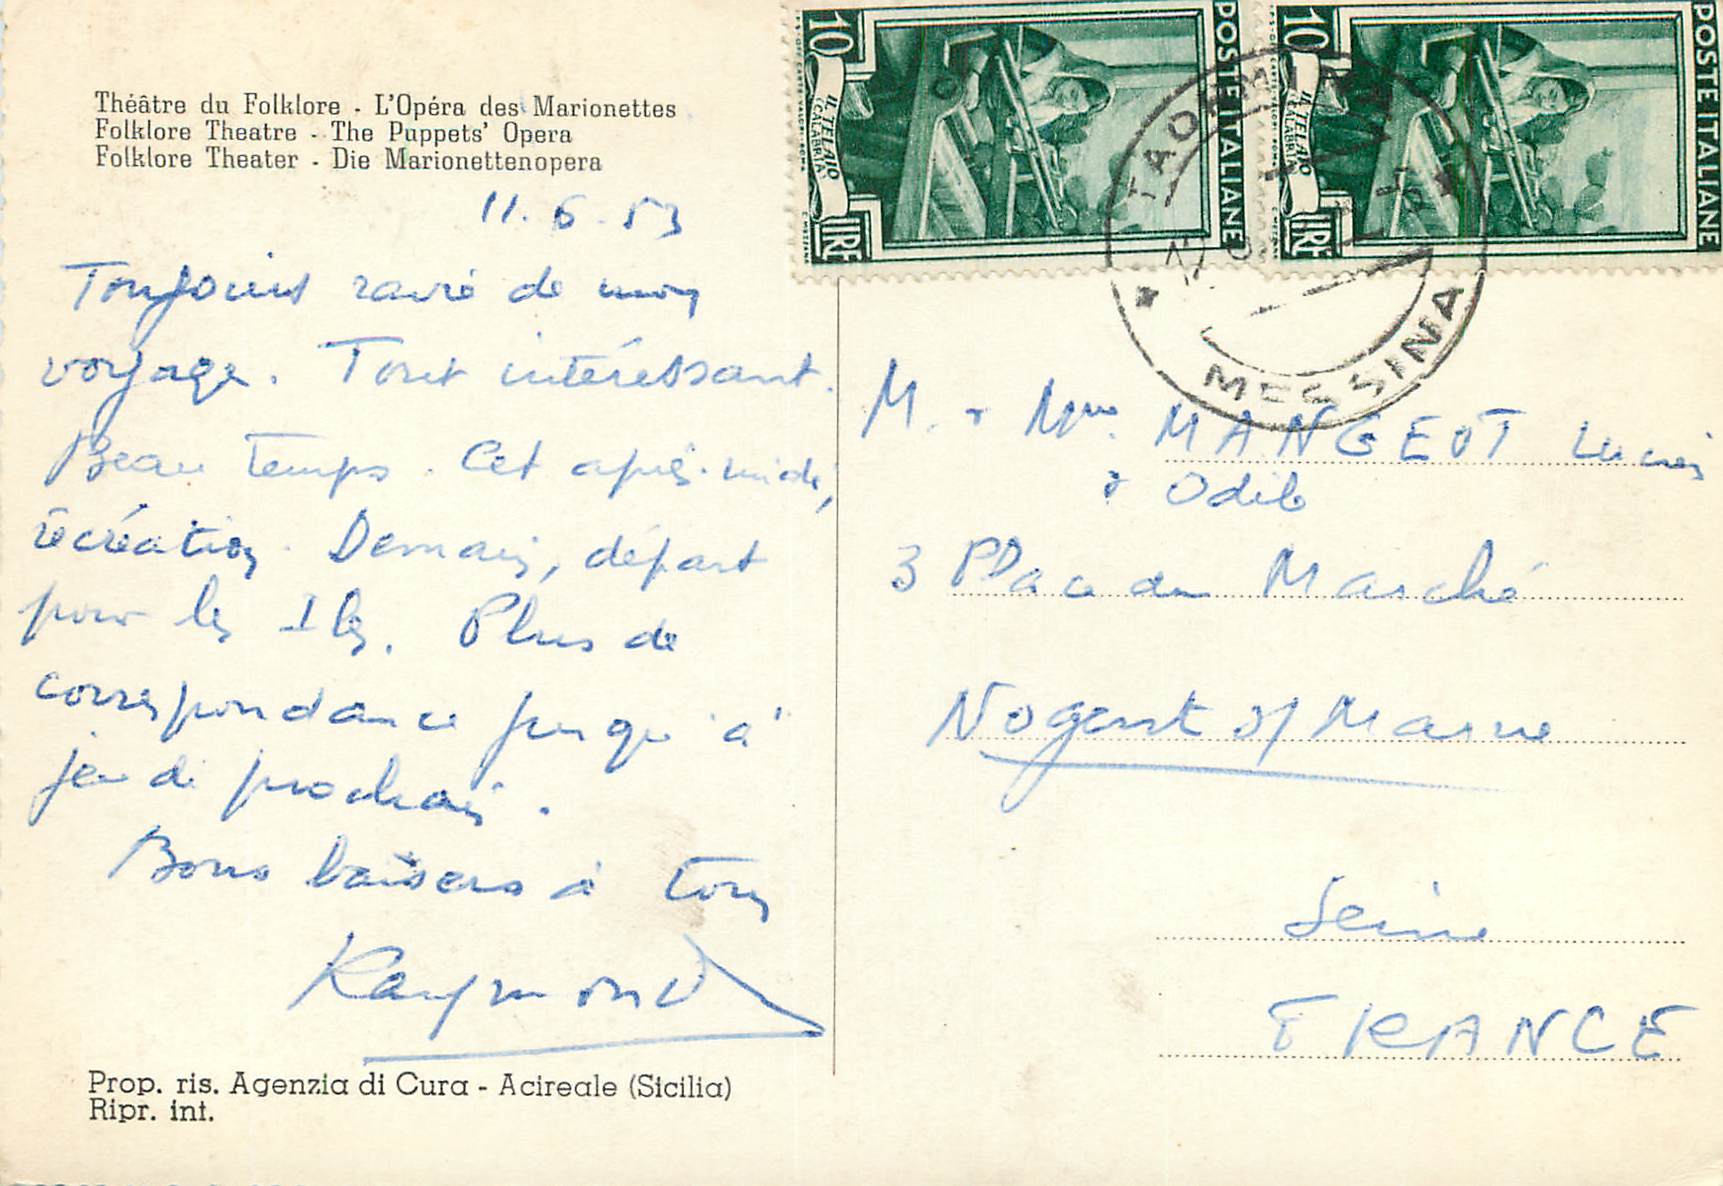 Théâtre du Folklore - L'Opéra des Marionettes
Folklore Theatre - The Puppets' Opera
Folklore Theater - Die Marionettenopera
11.6.53
Toujours ravie de mon
voyage. Tout intéressant.
Beau temps. Cet après-midi,
récréation. Demain, départ
pour les Iles. Plus de
correspondance jusqu'à
jeudi prochain.
Bons baisers à tous
Raymond
Prop. ris. Agenzia di Cura - Acireale (Sicilia)
Ripr. int.
10 LIRE
IL TELAIO
(CALABRIA)
POSTE ITALIANE
10 LIRE
IL TELAIO
(CALABRIA)
POSTE ITALIANE
TAORMINA
MESSINA
M. & Mme. MANGEOT Lucien
& Odile
3 Place du Marché
Nogent s/ Marne
Seine
FRANCE